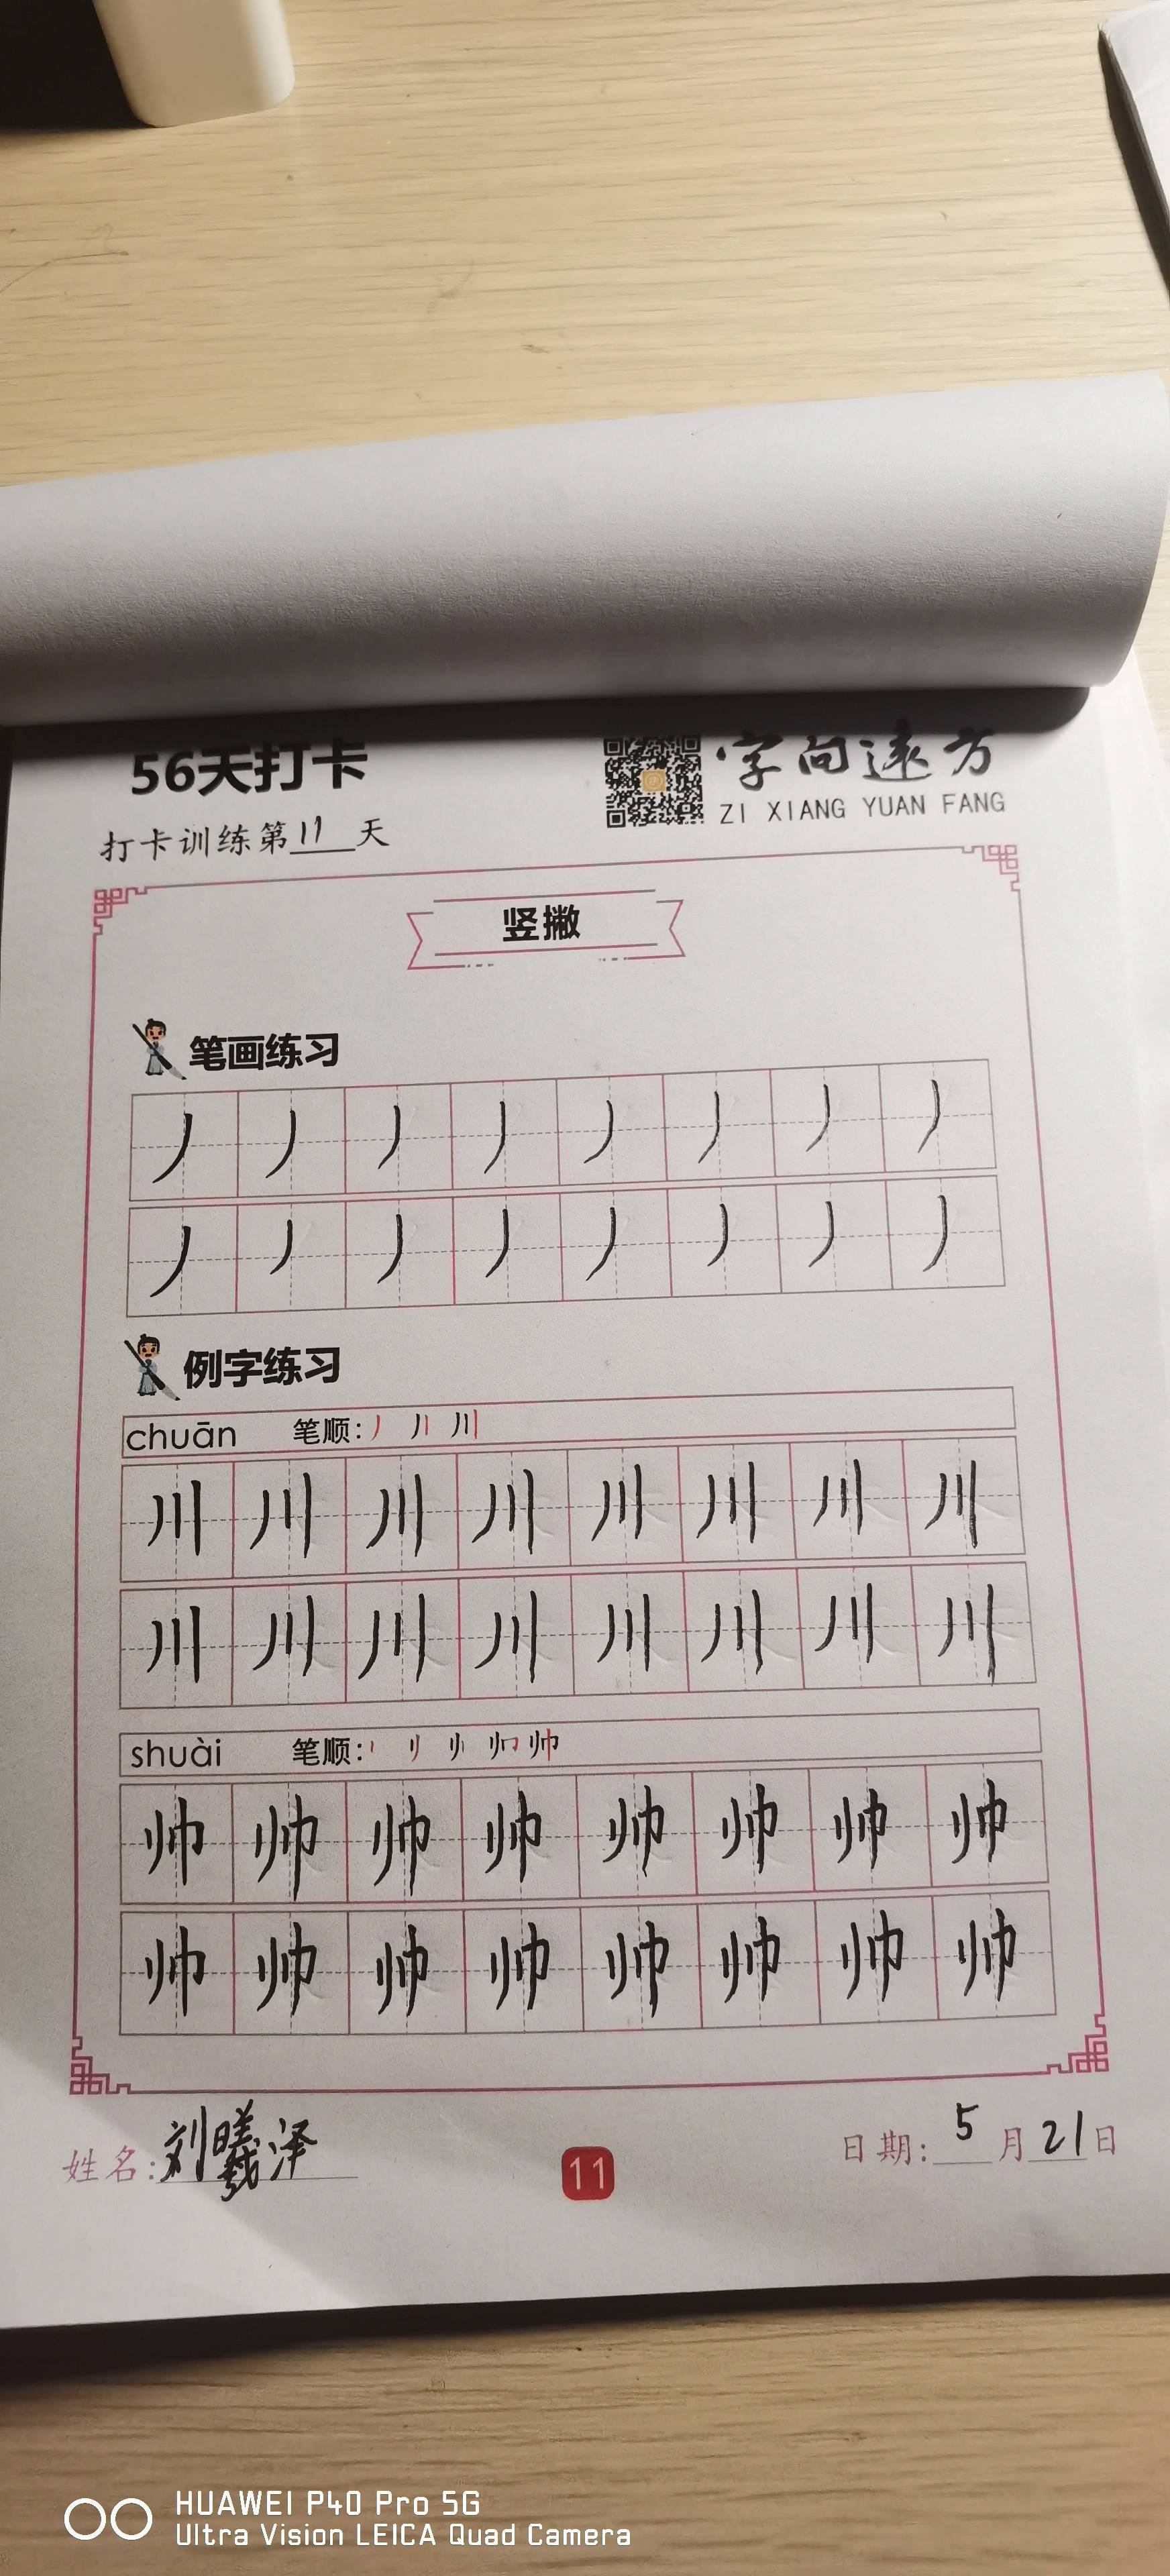 56天打卡
字向远方
ZI XIANG YUAN FANG
打卡训练第11天
竖撇
笔画练习
丿丿丿丿丿丿丿丿
丿丿丿丿丿丿丿丿
例字练习
chuān 笔顺:丿 川
川川川川川川川川
川川川川川川川川
shuài 笔顺: 帅
帅帅帅帅帅帅帅帅
帅帅帅帅帅帅帅帅
姓名:刘曦泽
11
日期:5月21日
HUAWEI P40 Pro 5G
Ultra Vision LEICA Quad Camera